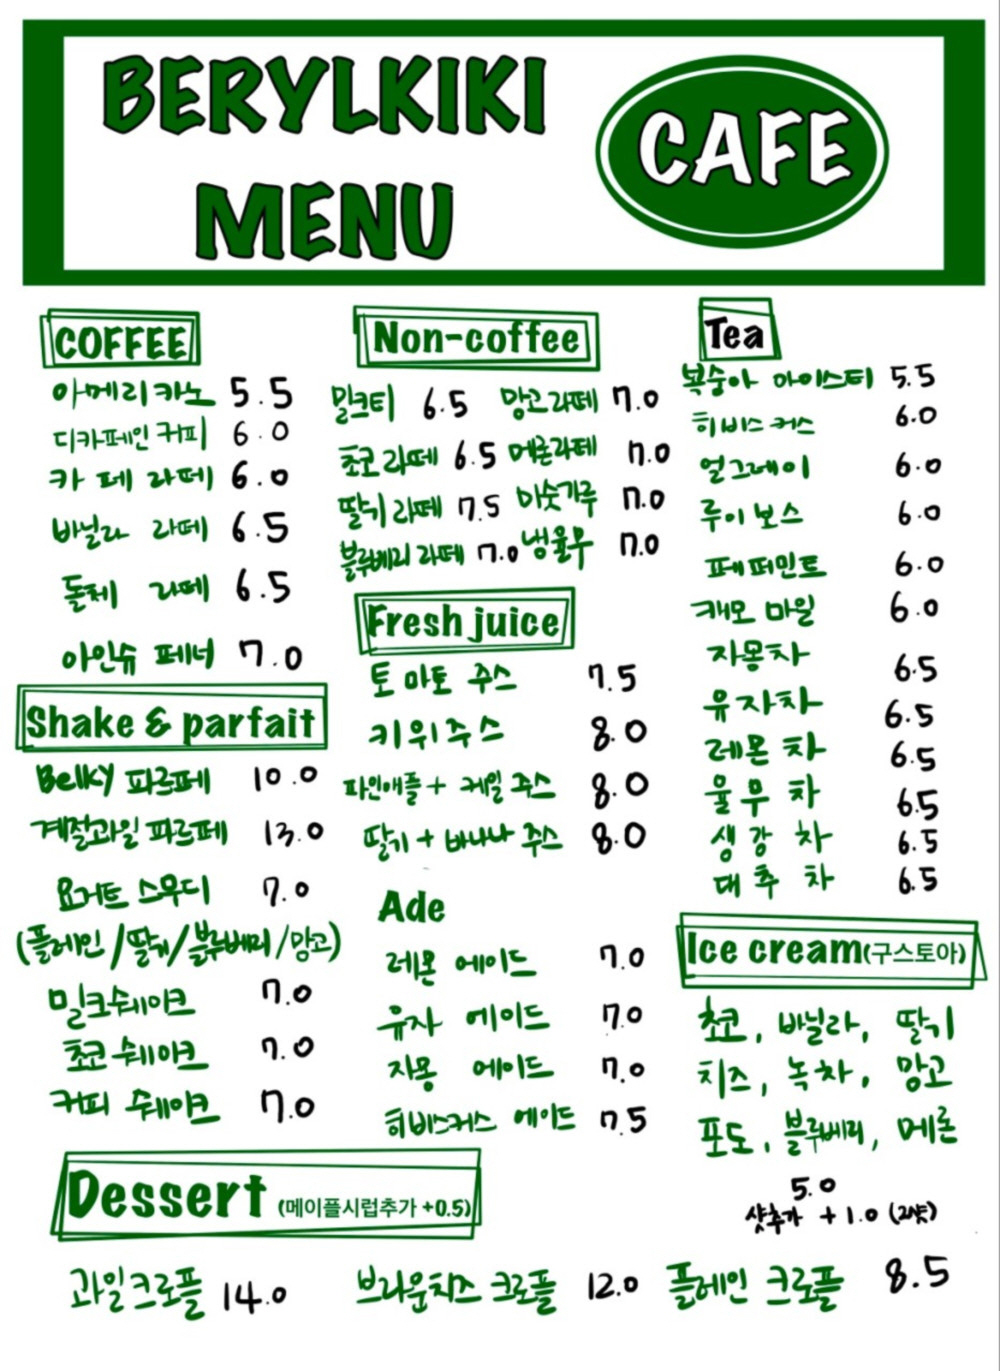 BERYLKIKI
MENU
CAFE
COFFEE
아메리카노 5.5
디카페인 커피 6.0
카페 라떼 6.0
바닐라 라떼 6.5
돌체 라떼 6.5
아인슈페너 7.0
Shake & parfait
Belky 파르페 10.0
계절과일 파르페 13.0
요거트 스무디 7.0
(플레인/딸기/블루베리/망고)
밀크쉐이크 7.0
쵸코 쉐이크 7.0
커피 쉐이크 7.0
Non-coffee
밀크티 6.5 망고라떼 7.0
쵸코라떼 6.5 메론라떼 7.0
딸기라떼 7.5 미숫가루 7.0
블루베리 라떼 7.0 냉율무 7.0
Fresh juice
토마토 주스 7.5
키위주스 8.0
파인애플+케일 주스 8.0
딸기+바나나 주스 8.0
Ade
레몬 에이드 7.0
유자 에이드 7.0
자몽 에이드 7.0
히비스커스 에이드 7.5
Tea
복숭아 아이스티 5.5
히비스커스 6.0
얼그레이 6.0
루이보스 6.0
페퍼민트 6.0
캐모마일 6.0
자몽차 6.5
유자차 6.5
레몬차 6.5
율무차 6.5
생강차 6.5
대추차 6.5
Ice cream(구스토아)
쵸코, 바닐라, 딸기
치즈, 녹차, 망고
포도, 블루베리, 메론
5.0
샷추가 +1.0 (2샷)
Dessert (메이플시럽추가 +0.5)
과일크로플 14.0 브라운치즈 크로플 12.0 플레인 크로플 8.5